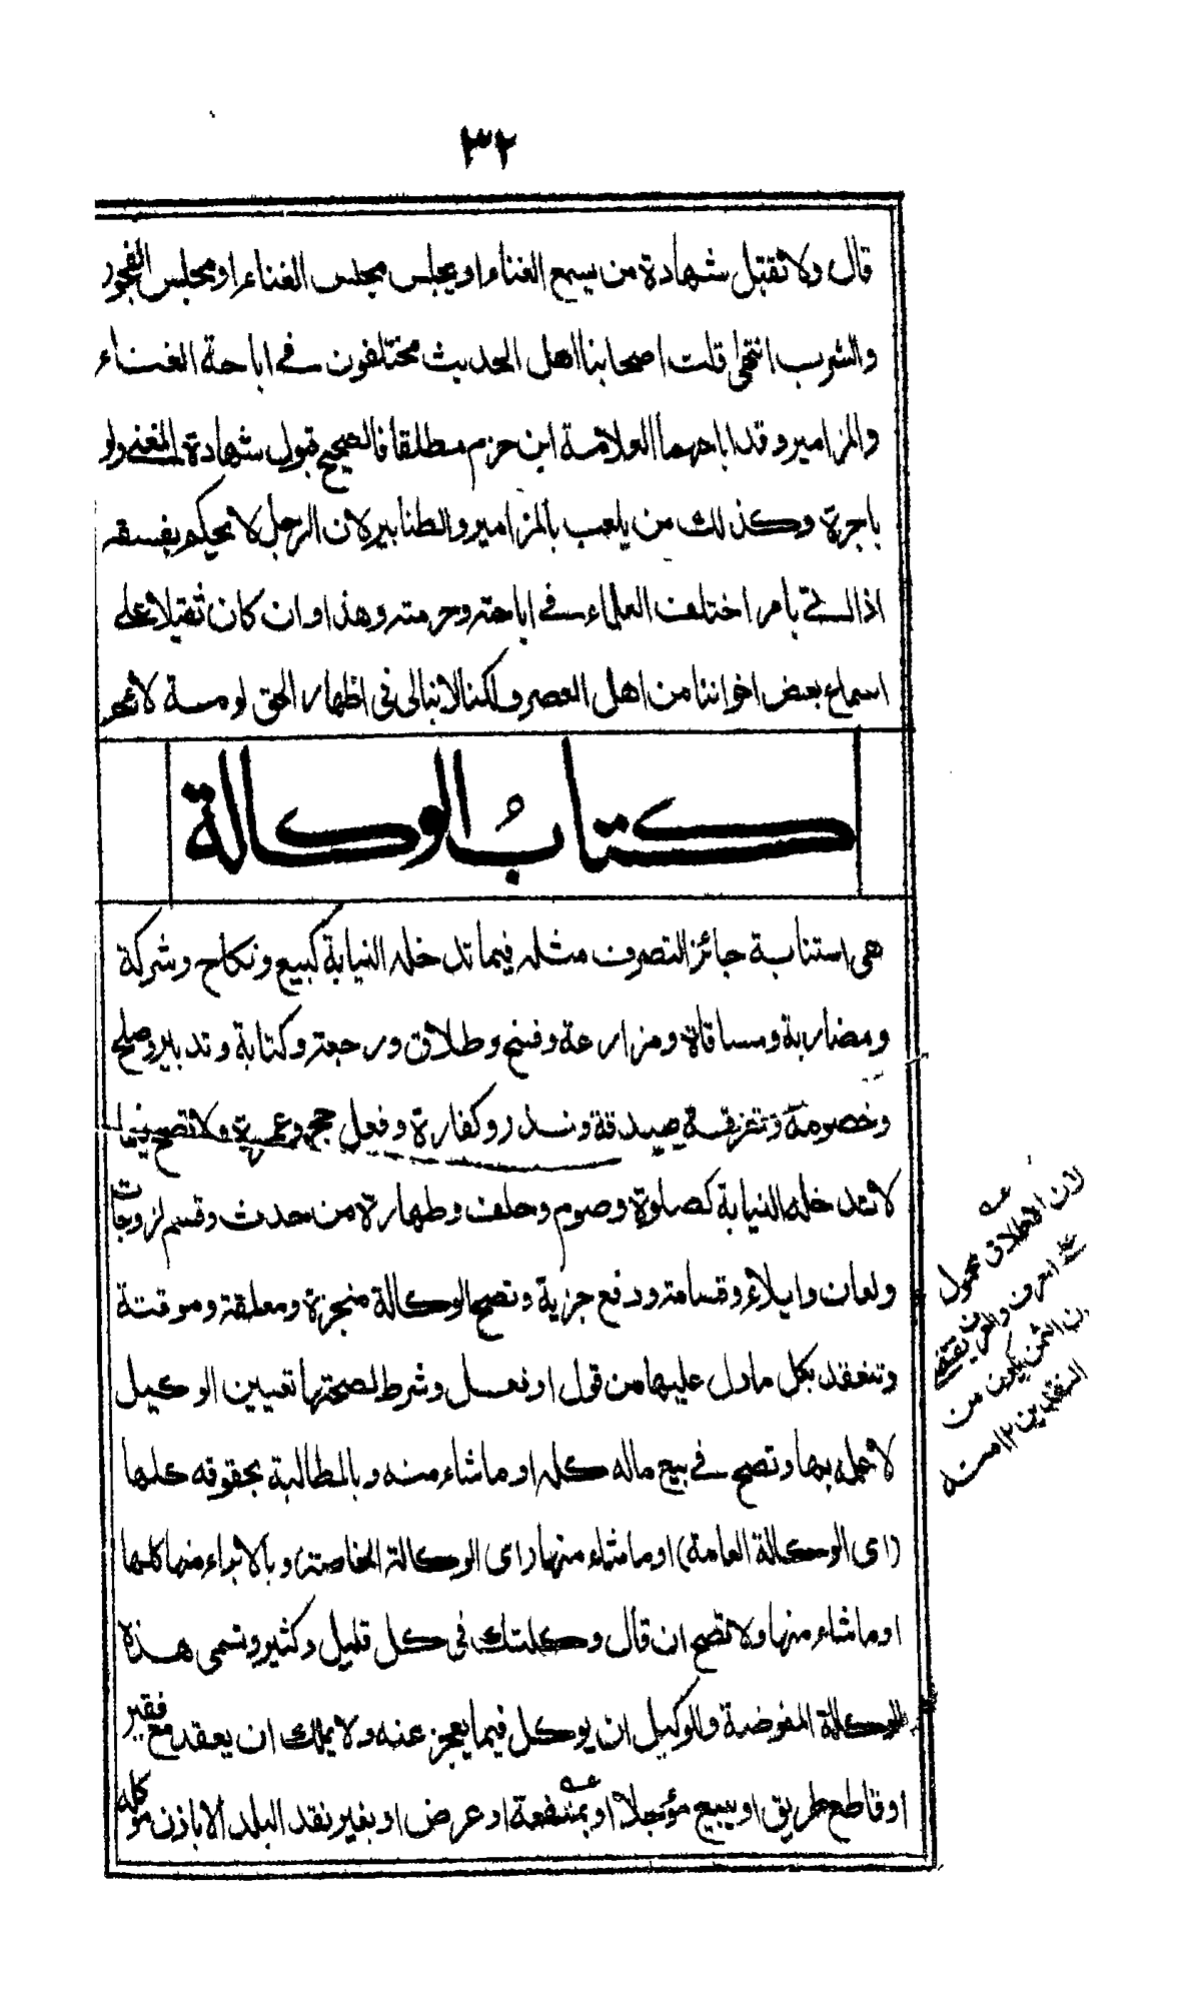 ٣٢
قال ولا تقبل شهادة من يسمع الغناء او يجلس مجلس الغناء او مجلس الفجور
والشرب انتهى قلت اصحابنا اهل الحديث مختلفون في اباحة الغناء
والمزامير وقد اباحهما العلامة ابن حزم مطلقا فالصحيح قبول شهادة المغني ولو
باجرة وكذلك من يلعب بالمزامير والطنابير لان الرجل لا يحكم بفسقه
اذا اتى بامر اختلف العلماء في اباحته وحرمته وهذا وان كان ثقيلا على
اسماع بعض اخواننا من اهل العصر ولكنا لا نبالى فى اظهار الحق لومة لائم
كتابُ الوكالة
هى استنابة جائز التصرف مثله فيما تدخله النيابة كبيع ونكاح وشركة
ومضاربة ومساقاة ومزارعة وفسخ وطلاق ورجعة وكتابة وتدبير وصلح
وخصومة وتفرقة صدقة ونذر وكفارة وفعل حج وعمرة ولا تصح فيما
لا تدخله النيابة كصلوة وصوم وحلف وطهارة من حدث وقسم لزوجات
ولعان وايلاء وقسامة ودفع جزية وتصح الوكالة منجزة ومعلقة وموقتة
وتنعقد بكل ما دل عليها من قول او فعل وشرط لصحتها تعيين الوكيل
لا علمه بها وتصح في بيع ماله كله او ما شاء منه وبالمطالبة بحقوقه كلها
(اى الوكالة العامة) او ما شاء منها (اى الوكالة الخاصة) وبالابراء منها كلها
او ما شاء منها ولا تصح ان قال وكلتك فى كل قليل وكثير وتسمى هذة
الوكالة المفوضة وللوكيل ان يوكل فيما يعجز عنه ولا يملك ان يعقد مع فقير
او قاطع طريق او يبيع مؤجلا او بمنفعة او عرض او بغير نقد البلد الا باذن موكله
لان الاطلاق محمول
على العرف والعرف يقتضي
ان الثمن يكون من
النقدين ١٢ منه